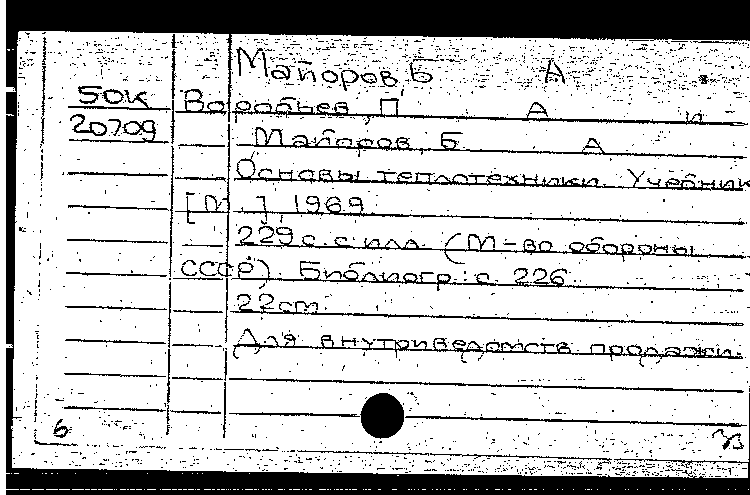 Майоров, Б А
50К Воробьев, П. А и
20709 Майоров, Б. А
Основы теплотехники. Учебник
[М.], 1969.
229 с. с илл. (М-во обороны
СССР). Библиогр.: с. 226
22см
Для внутриведомств. продажи.
6